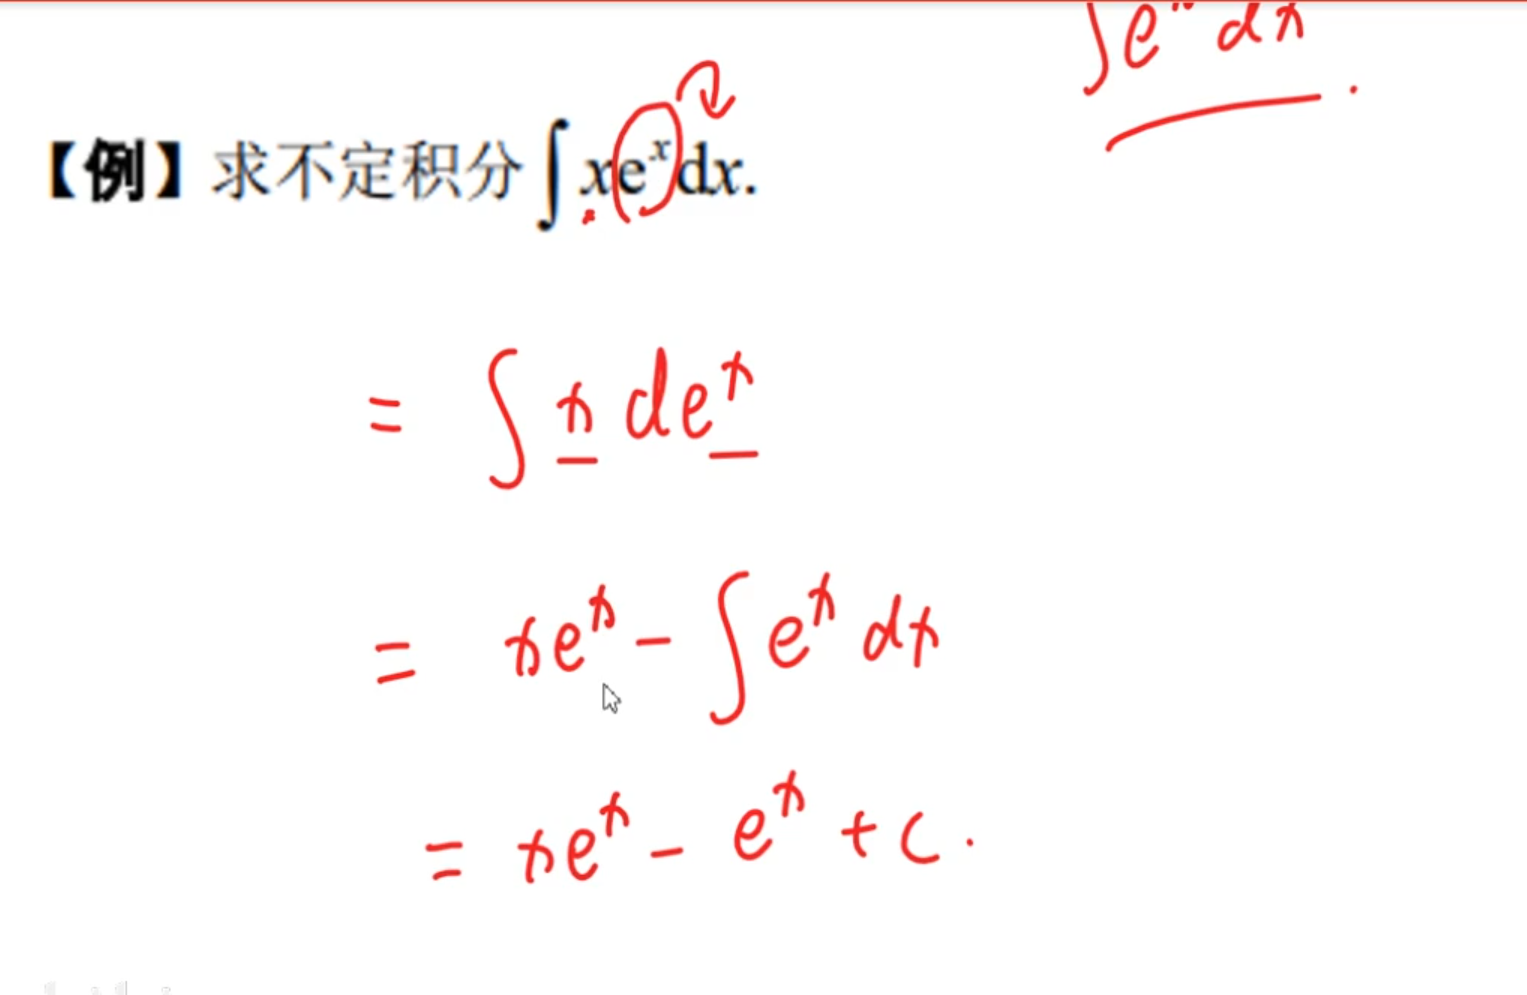 ∫eˣ dx .
【例】求不定积分∫xeˣdx.
= ∫ x deˣ
= xeˣ - ∫eˣ dx
= xeˣ - eˣ + C .